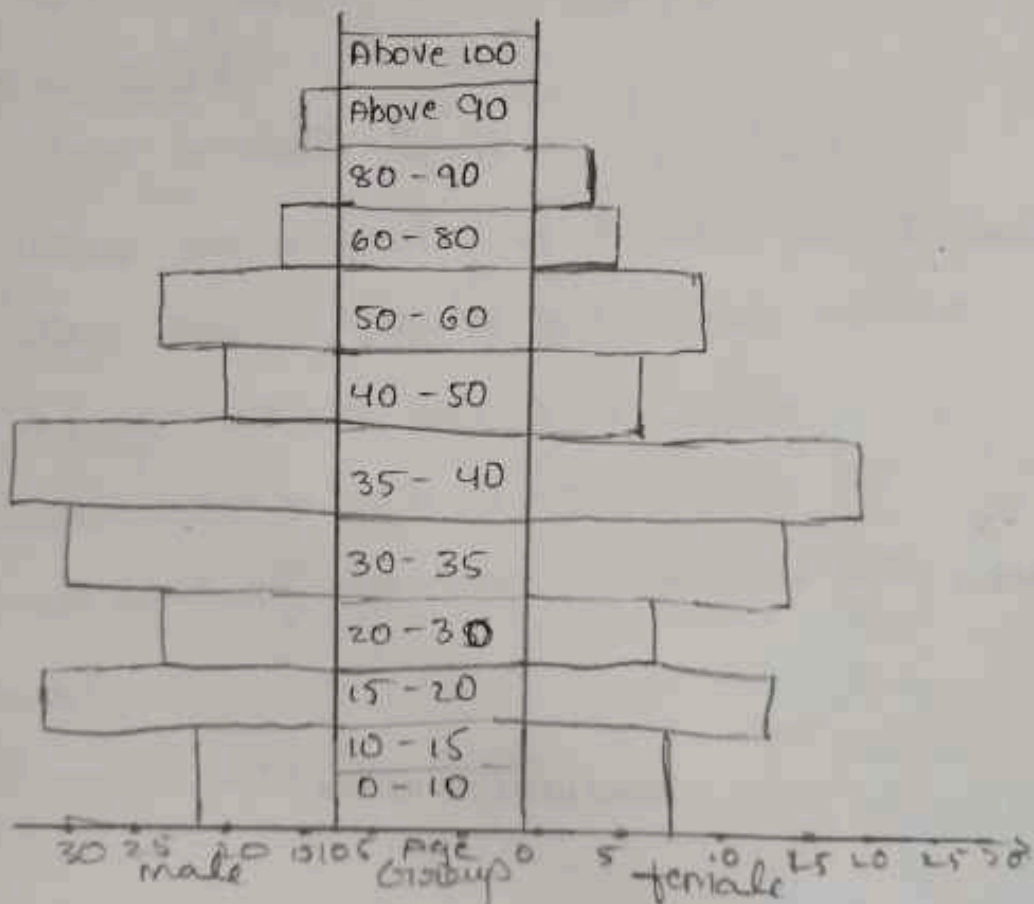 Above 100
Above 90
80 - 90
60 - 80
50 - 60
40 - 50
35 - 40
30 - 35
20 - 30
15 - 20
10 - 15
0 - 10
30 25 20 15 10 5 Age 0 5 10 25 20 25 30
male Group female